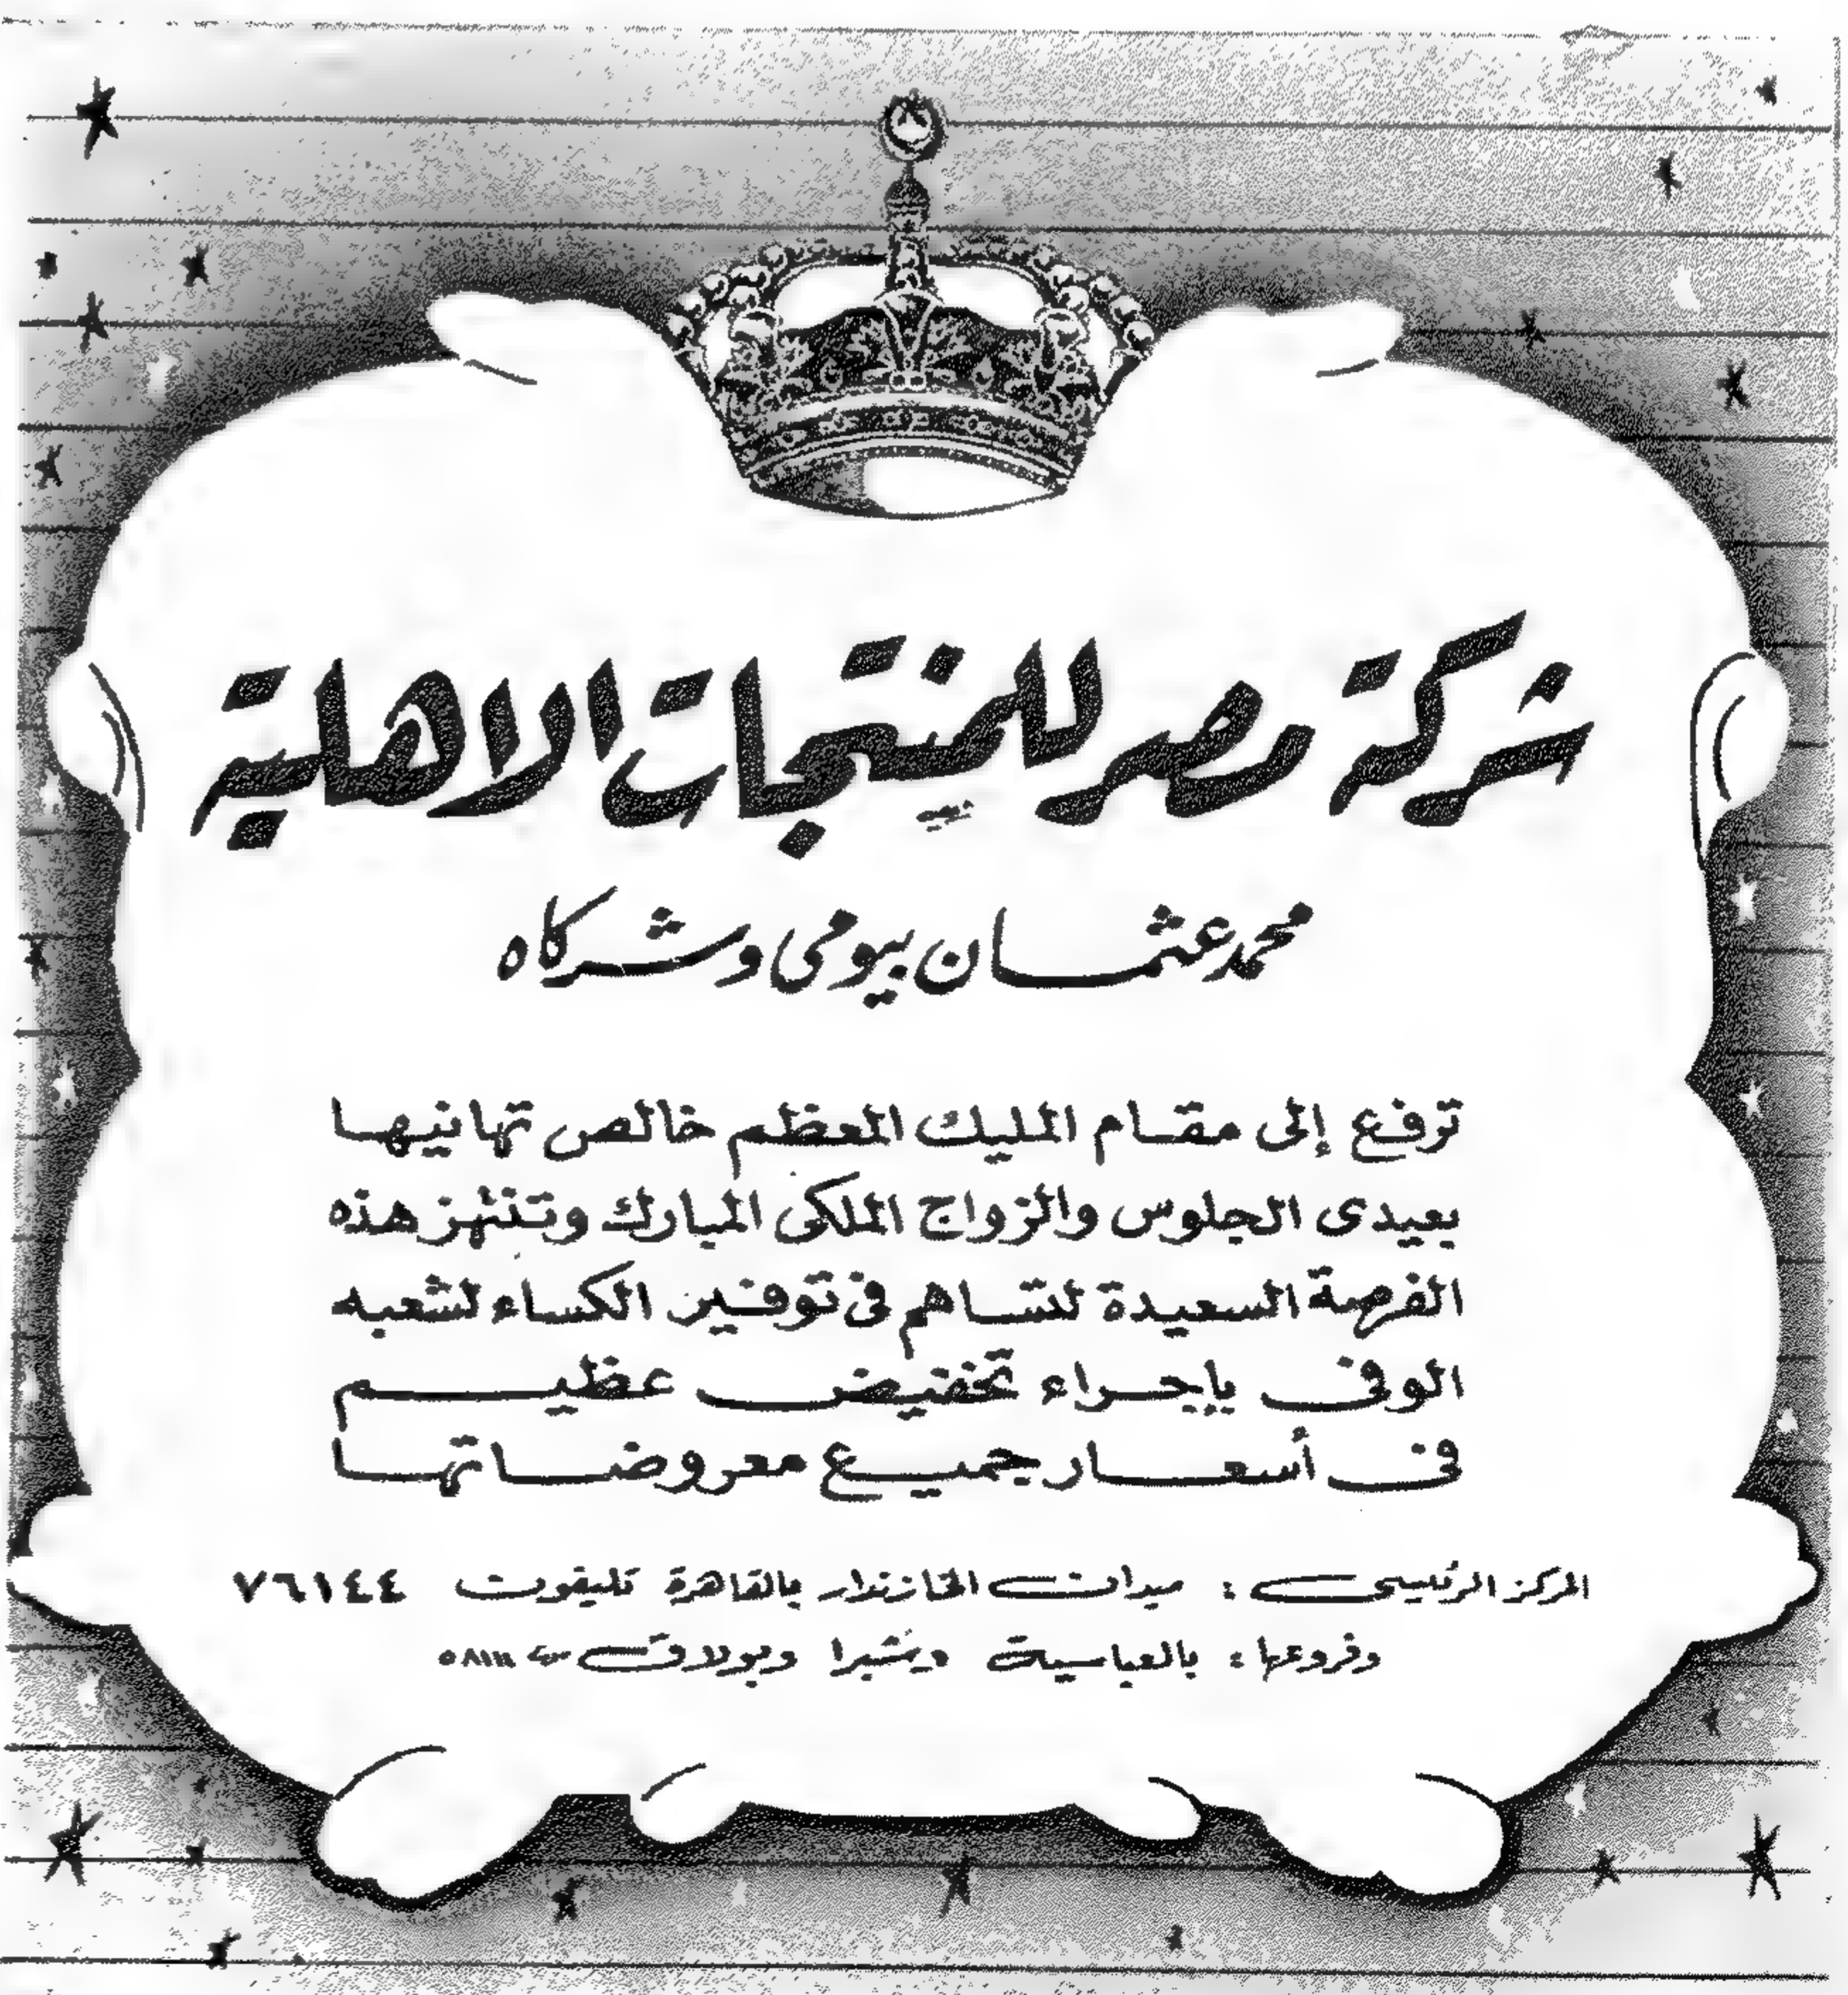 شركة مصر للمنتجات الاهلية
محمد عثمان بيومى وشركاه
ترفع إلى مقام المليك المعظم خالص تهانيها
بعيدى الجلوس والزواج الملكى المبارك وتنتهز هذه
الفرصة السعيدة لتساهم فى توفير الكساء لشعبه
الوفى بإجراء تخفيض عظيم
فى أسعار جميع معروضاتها
المركز الرئيسى : ميدان الخازندار بالقاهرة تليفون ٧٦١٤٤
وفروعها : بالعباسية وشبرا وبولاق